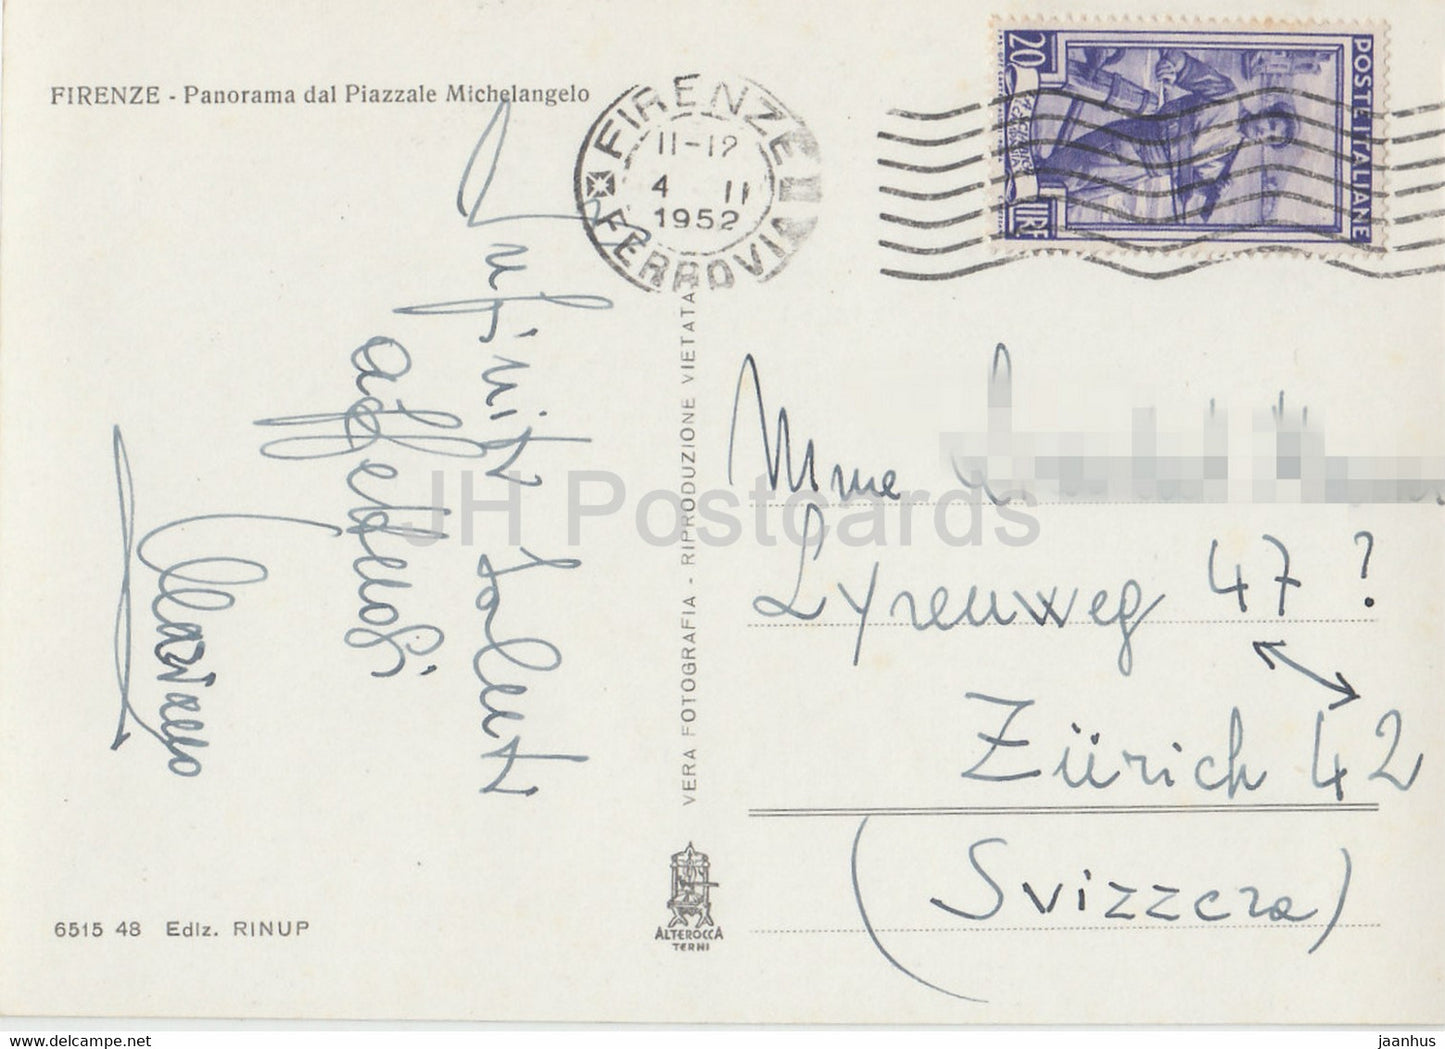 FIRENZE - Panorama dal Piazzale Michelangelo
FIRENZE
11-12
4 11
1952
FERROVIA
20
LIRE
POSTE ITALIANE
Infiniti saluti
affettuosi
VERA FOTOGRAFIA - RIPRODUZIONE VIETATA
Mme
Lyrenweg 47?
Zürich 42
(Svizzera)
6515 48 Ediz. RINUP
ALTEROCCA
TERNI
JH Postcards
www.delcampe.net
jaanhus